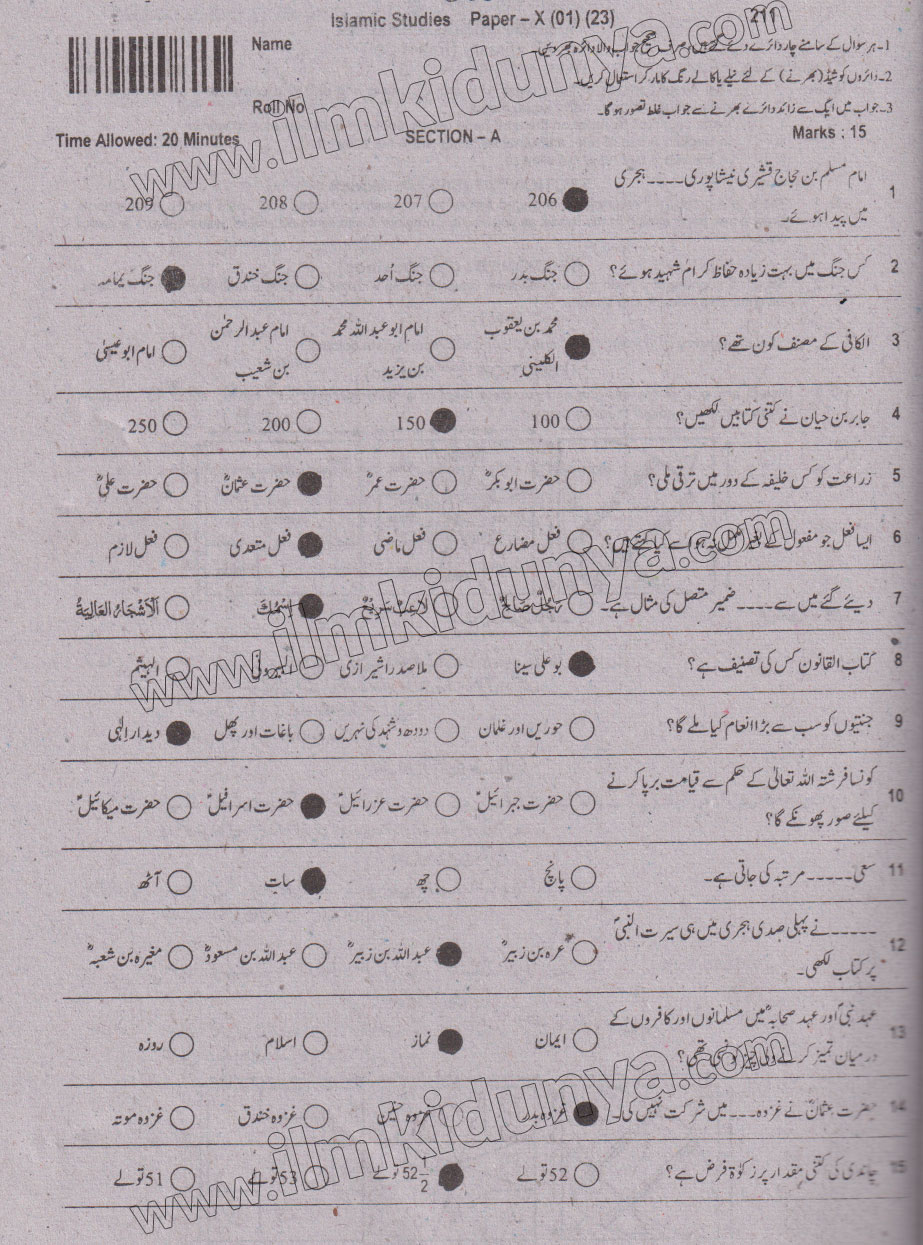 Islamic Studies Paper – X (01) (23) 211
Name
1۔ہر سوال کے سامنے چار دائرے دئے گئے ہیں صرف صحیح جواب والا دائرہ بھر دیں۔
2۔دائروں کو شیڈ (بھرنے) کے لئے نیلے یا کالے رنگ کا مارکر استعمال کریں۔
Roll No
3۔جواب میں ایک سے زائد دائرے بھرنے سے جواب غلط تصور ہوگا۔
Time Allowed: 20 Minutes SECTION – A Marks : 15
1 امام مسلم بن حجاج قشیری نیشاپوری ---- ہجری
میں پیدا ہوئے۔
206 207 208 209
2 کس جنگ میں بہت زیادہ حفاظ کرام شہید ہوئے؟ جنگ بدر جنگ اُحد جنگ خندق جنگ یمامہ
3 الکافی کے مصنف کون تھے؟
محمد بن یعقوب الکلینی
امام ابو عبداللہ محمد بن یزید
امام عبدالرحمٰن بن شعیب
امام ابو عیسیٰ
4 جابر بن حیان نے کتنی کتابیں لکھیں؟ 100 150 200 250
5 زراعت کو کس خلیفہ کے دور میں ترقی ملی؟ حضرت ابوبکرؓ حضرت عمرؓ حضرت عثمانؓ حضرت علیؓ
6 ایسا فعل جو مفعول کے بغیر مکمل نہ ہو اسے کیا کہتے ہیں؟ فعل مضارع فعل ماضی فعل متعدی فعل لازم
7 دیئے گئے میں سے ---- ضمیر متصل کی مثال ہے۔ رَجُلٌ صَالِحٌ لَاعِبٌ سَرِیْعٌ اِسْمُكَ اَلْاَشْجَارُ الْعَالِیَةُ
8 کتاب القانون کس کی تصنیف ہے؟ بو علی سینا ملا صدرا شیرازی البیرونی الہیثم
9 جنتیوں کو سب سے بڑا انعام کیا ملے گا؟ حوریں اور غلمان دودھ و شہد کی نہریں باغات اور پھل دیدار الٰہی
10 کونسا فرشتہ اللہ تعالیٰ کے حکم سے قیامت برپا کرنے
کیلئے صور پھونکے گا؟
حضرت جبرائیلؑ حضرت عزرائیلؑ حضرت اسرافیلؑ حضرت میکائیلؑ
11 سعی ----- مرتبہ کی جاتی ہے۔ پانچ چھ سات آٹھ
12 ----- نے پہلی صدی ہجری میں ہی سیرت النبیؐ
پر کتاب لکھی۔
عروہ بن زبیرؓ عبداللہ بن زبیرؓ عبداللہ بن مسعودؓ مغیرہ بن شعبہؓ
13 عہد نبیؐ اور عہد صحابہؓ میں مسلمانوں اور کافروں کے
درمیان تمیز کرنے والی چیز کونسی تھی؟
ایمان نماز اسلام روزہ
14 حضرت عثمانؓ نے غزوہ --- میں شرکت نہیں کی۔ غزوہ بدر غزوہ حنین غزوہ خندق غزوہ موتہ
15 چاندی کی کتنی مقدار پر زکوٰۃ فرض ہے؟ 52 تولے 52 1/2 تولے 53 تولے 51 تولے
www.ilmkidunya.com
www.ilmkidunya.com
www.ilmkidunya.com